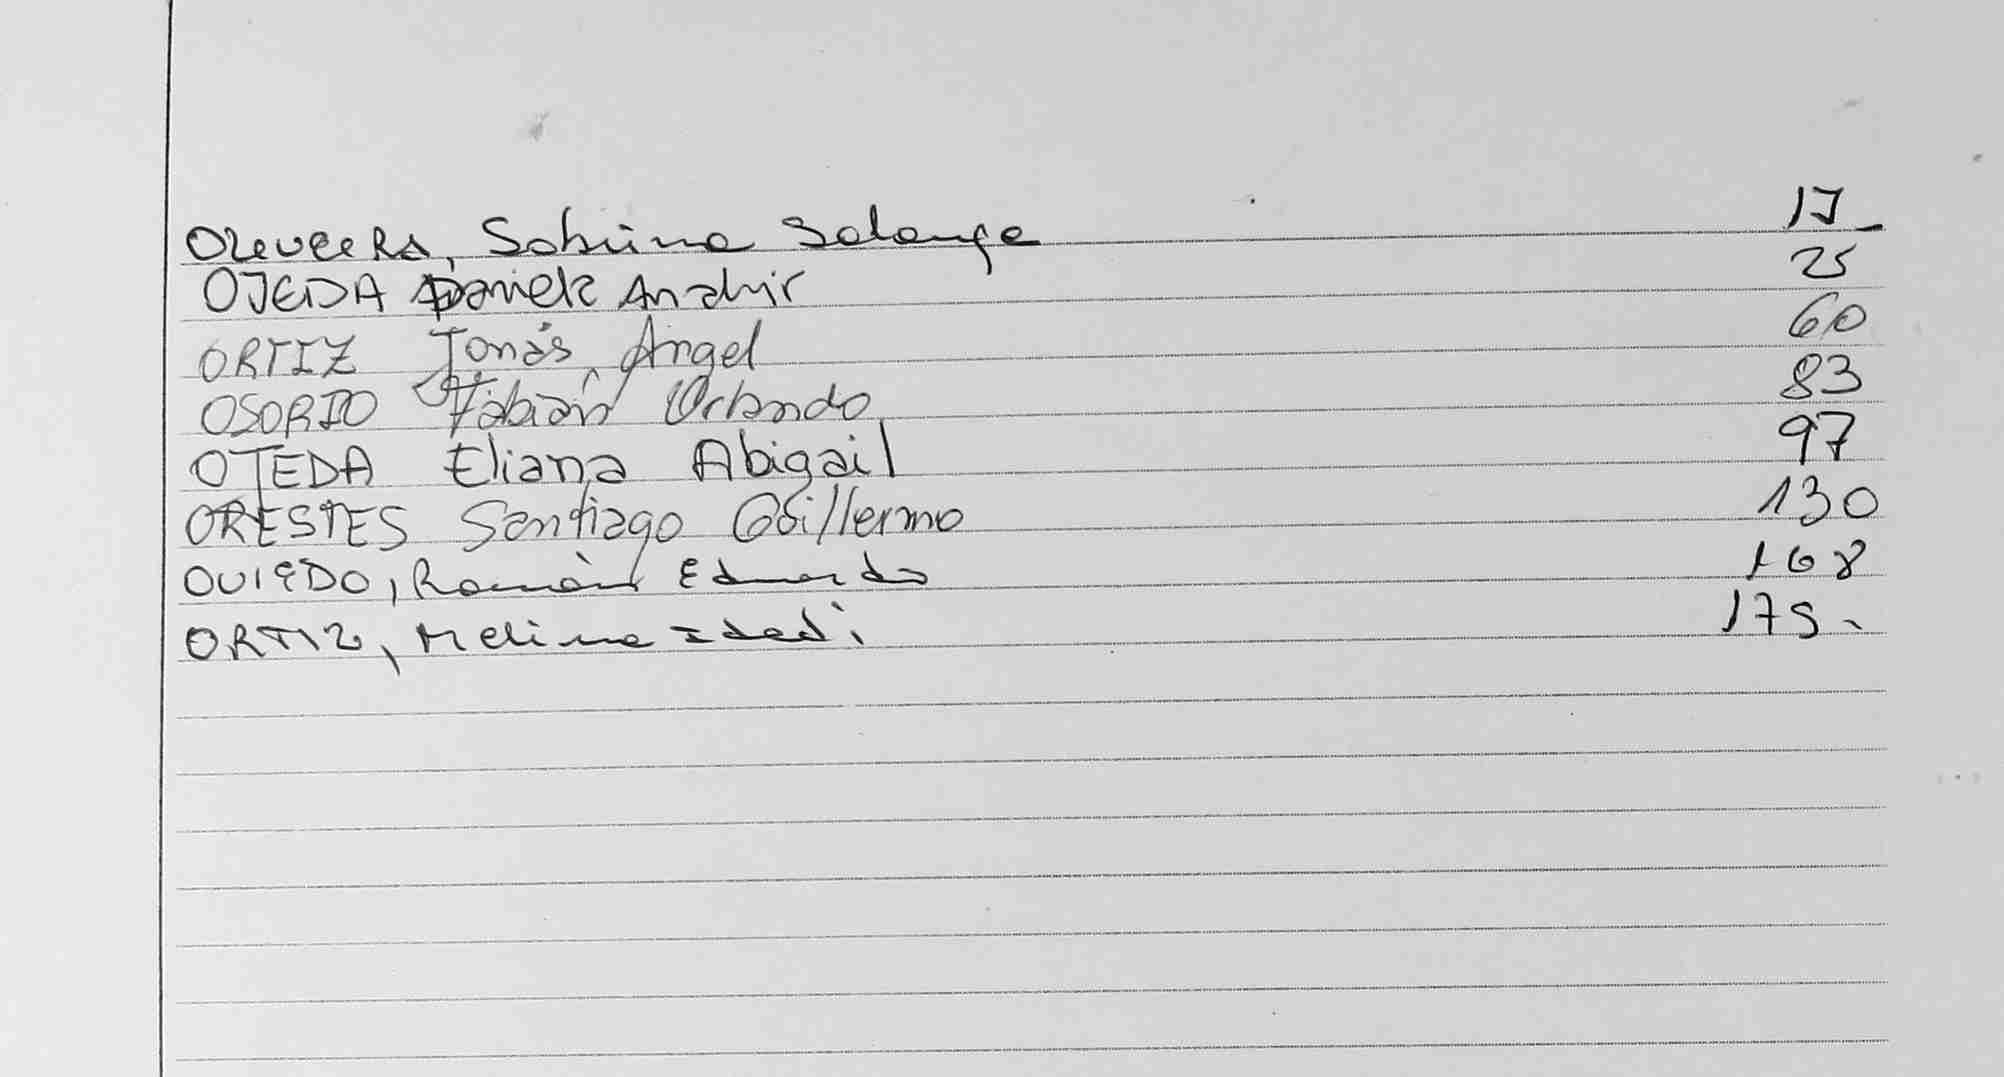 OLIVEERA, Sabrina Solange 17
OJEDA Daniel Anahir 25
ORTIZ Jonás Angel 60
OSORIO Fabián Orlando 83
OJEDA Eliana Abigail 97
ORESTES Santiago Guillermo 130
OVIEDO, Ramón Eduardo 168
ORTIZ, Melina Idedi 175